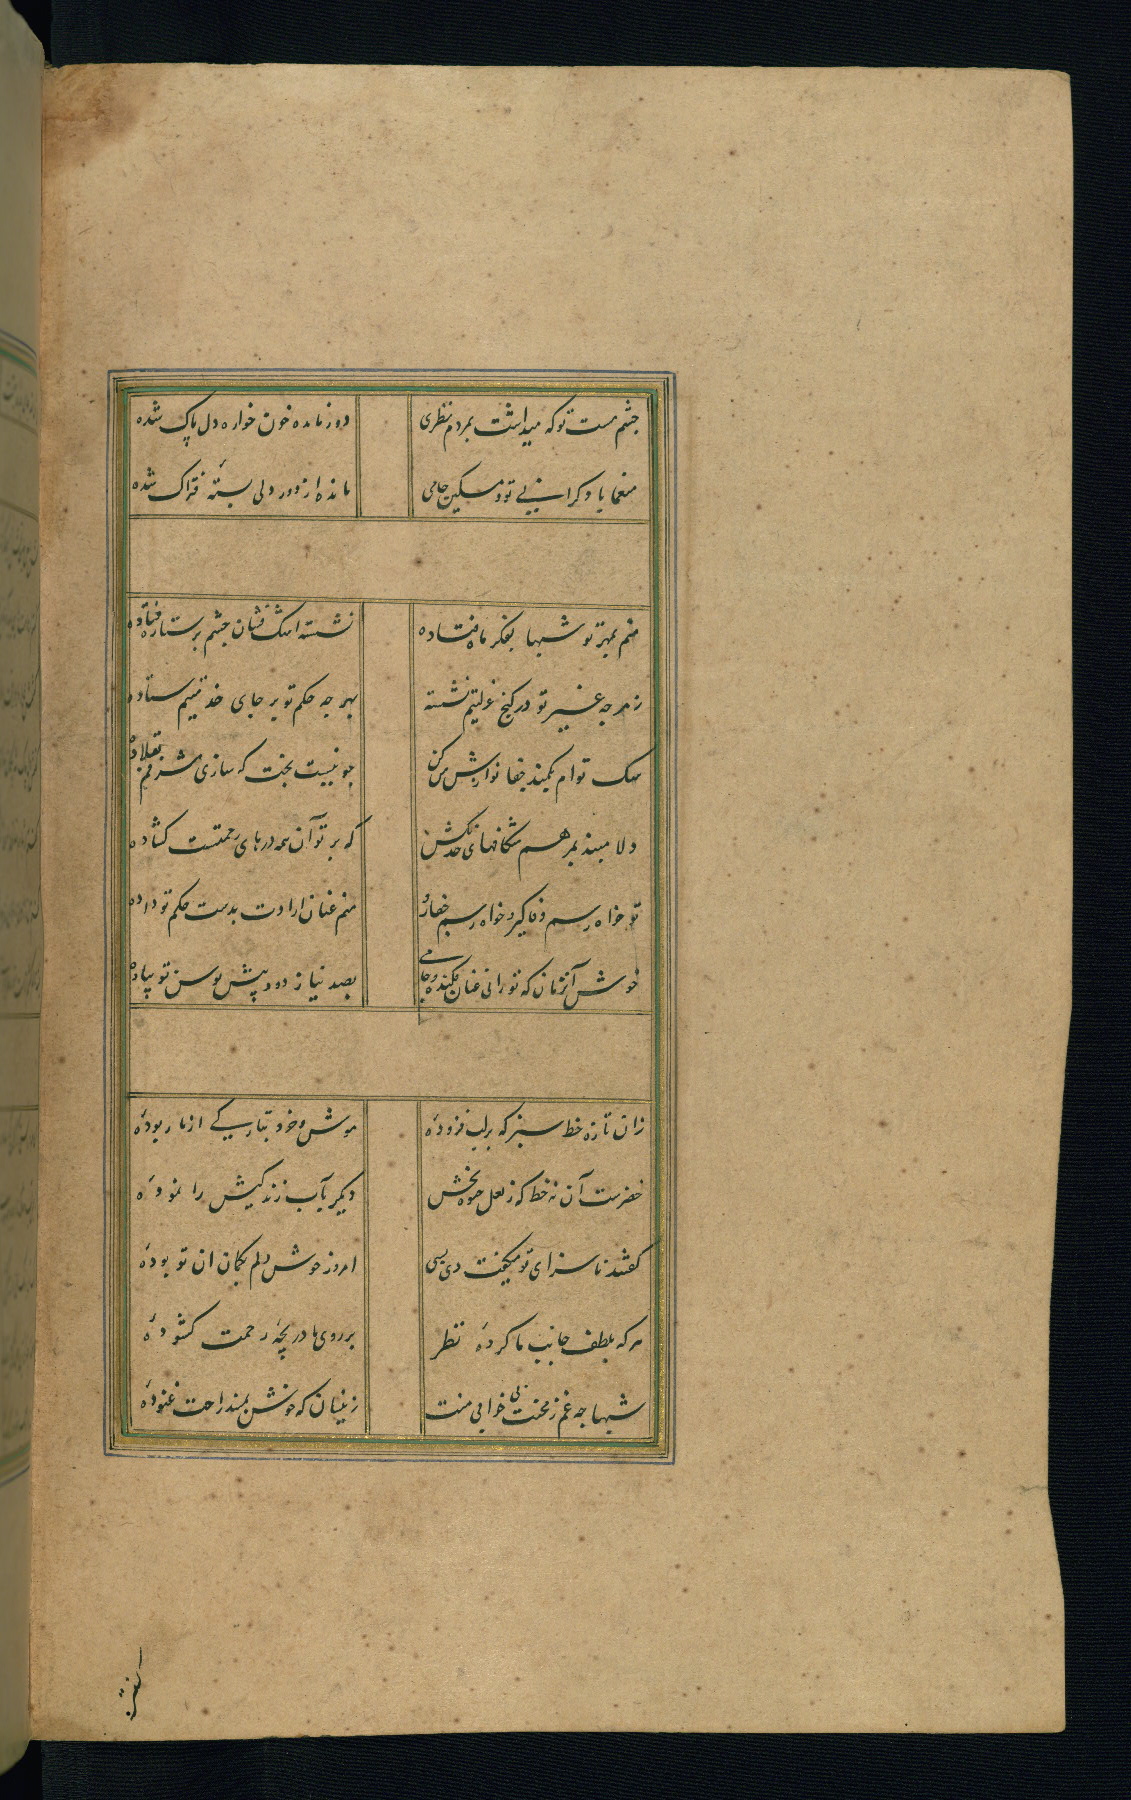 چشم مست تو که میداشت بمردم نظری
دور مانده خون خواره دل پاک شده
با دگرانی بی تو و مسکین جامی
مانده از دور ولی بستهٔ فتراک شده
منم بمهر تو شبها بفکر ماه فتاده
نشسته اشک فشان چشم بر ستاره فتاده
ز هر چه غیر تو در کنج عزلتیم نشسته
بهر چه حکم تو بر جای خدمتیم ستاده
سک توام بکمند جفا نوازش من کن
چو نیست بخت که سازی مشرفم بقلاده
دلا مبند بمرهم شکافهای خدنکش
که بر تو آن همه درهای رحمتست کشاده
تو خواه رسم وفا کیر و خواه رسم جفا رو
منم عنان ارادت بدست حکم تو داده
خوش آنزمان که تو رانی عنان فکنده و جامی
بصد نیاز دود پیش توسن تو پیاده
زان تازه خط سبز که بر لب فزودهٔ
هوش و خرد بتارکی از ما ربودهٔ
خضرست آن نه خط که ز لعل حیوه بخش
دیکر بآب زندکیش را نمودهٔ
کفتند ناسزای تو میکفت دی بسی
امروز خوش دلم بکمان ان تو بودهٔ
هر که بلطف جانب ما کردهٔ نظر
بر روی ما دریچهٔ رحمت کشودهٔ
شبها چه غم ز محنت بی خوابی منت
زینسان که خوش بمهد راحت غنودهٔ